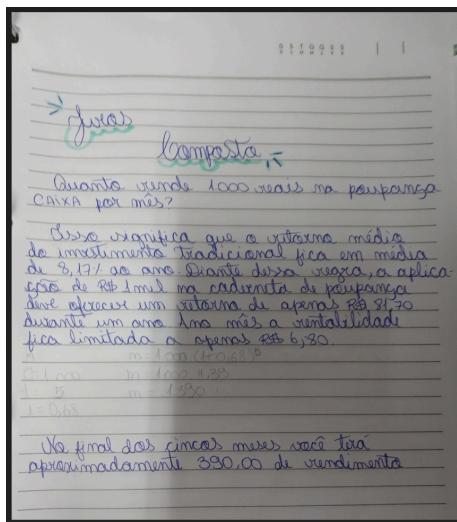 Juros
Composto
Quanto rende 1000 reais na poupança
CAIXA por mês?
Isso significa que o retorno médio
do investimento tradicional fica em média
de 8,17% ao ano. Diante dessa regra, a aplica-
ção de R$ 1 mil na caderneta de poupança
deve oferecer um retorno de apenas R$ 81,70
durante um ano no mês a rentabilidade
fica limitada a apenas R$ 6,80.
m = 1000 (1+0,68)5
C=1000 m = 1000 1,39
t= 5 m = 1390
i=0,68
No final dos cincos meses você terá
aproximadamente 390,00 de rendimento